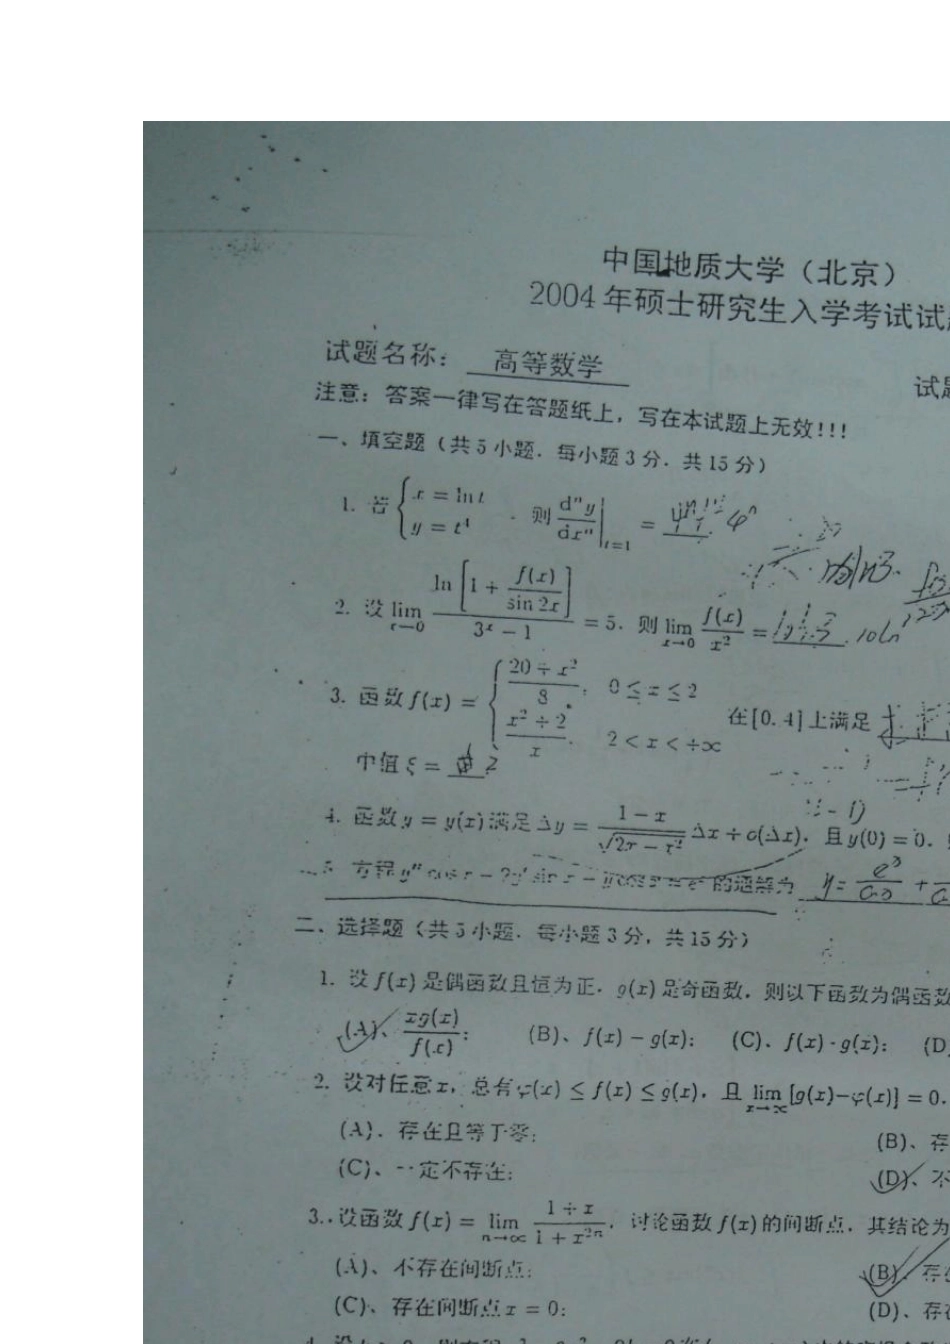 中国地质大学（北京）
2004 年硕士研究生入学考试试
试题名称： 高等数学
试题
注意：答案一律写在答题纸上，写在本试题上无效!!!
一、填空题（共 5 小题．每小题 3 分．共 15 分）
1. 若 { x = ln t, y = t⁴ ．则 dⁿy/dxⁿ |t=1 =
2. 设 lim x→0 ln[1 + f(x)/sin 2x] / (3ˣ − 1) = 5．则 lim x→0 f(x)/x² =
3. 函数 f(x) = { (20 + x²)/8， 0 ≤ x ≤ 2
(x² + 2)/x， 2 < x < +∞ 在[0. 4]上满足
中值 ξ = 2
4. 函数 y = y(x) 满足 Δy = (1 − x)/√(2x − x²) Δx + o(Δx)．且 y(0) = 0．
5. 方程 y″ cos x − 2y′ sin x − y cos x = eˣ 的通解为 y=
二、选择题（共 5 小题．每小题 3 分，共 15 分）
1. 设 f(x) 是偶函数且恒为正．g(x) 是奇函数．则以下函数为偶函数
(A)、xg(x)/f(x)； (B)、f(x) − g(x)； (C)．f(x) · g(x)； (D
2. 设对任意 x，总有 φ(x) ≤ f(x) ≤ g(x)，且 lim x→∞ [g(x)−φ(x)] = 0．
(A)．存在且等于零； (B)、存
(C)、一定不存在； (D)、不
3. 设函数 f(x) = lim n→∞ (1 + x)/(1 + x²ⁿ)，讨论函数 f(x) 的间断点．其结论为
(A)、不存在间断点； (B)、存在
(C)、存在间断点 x = 0； (D)、存在